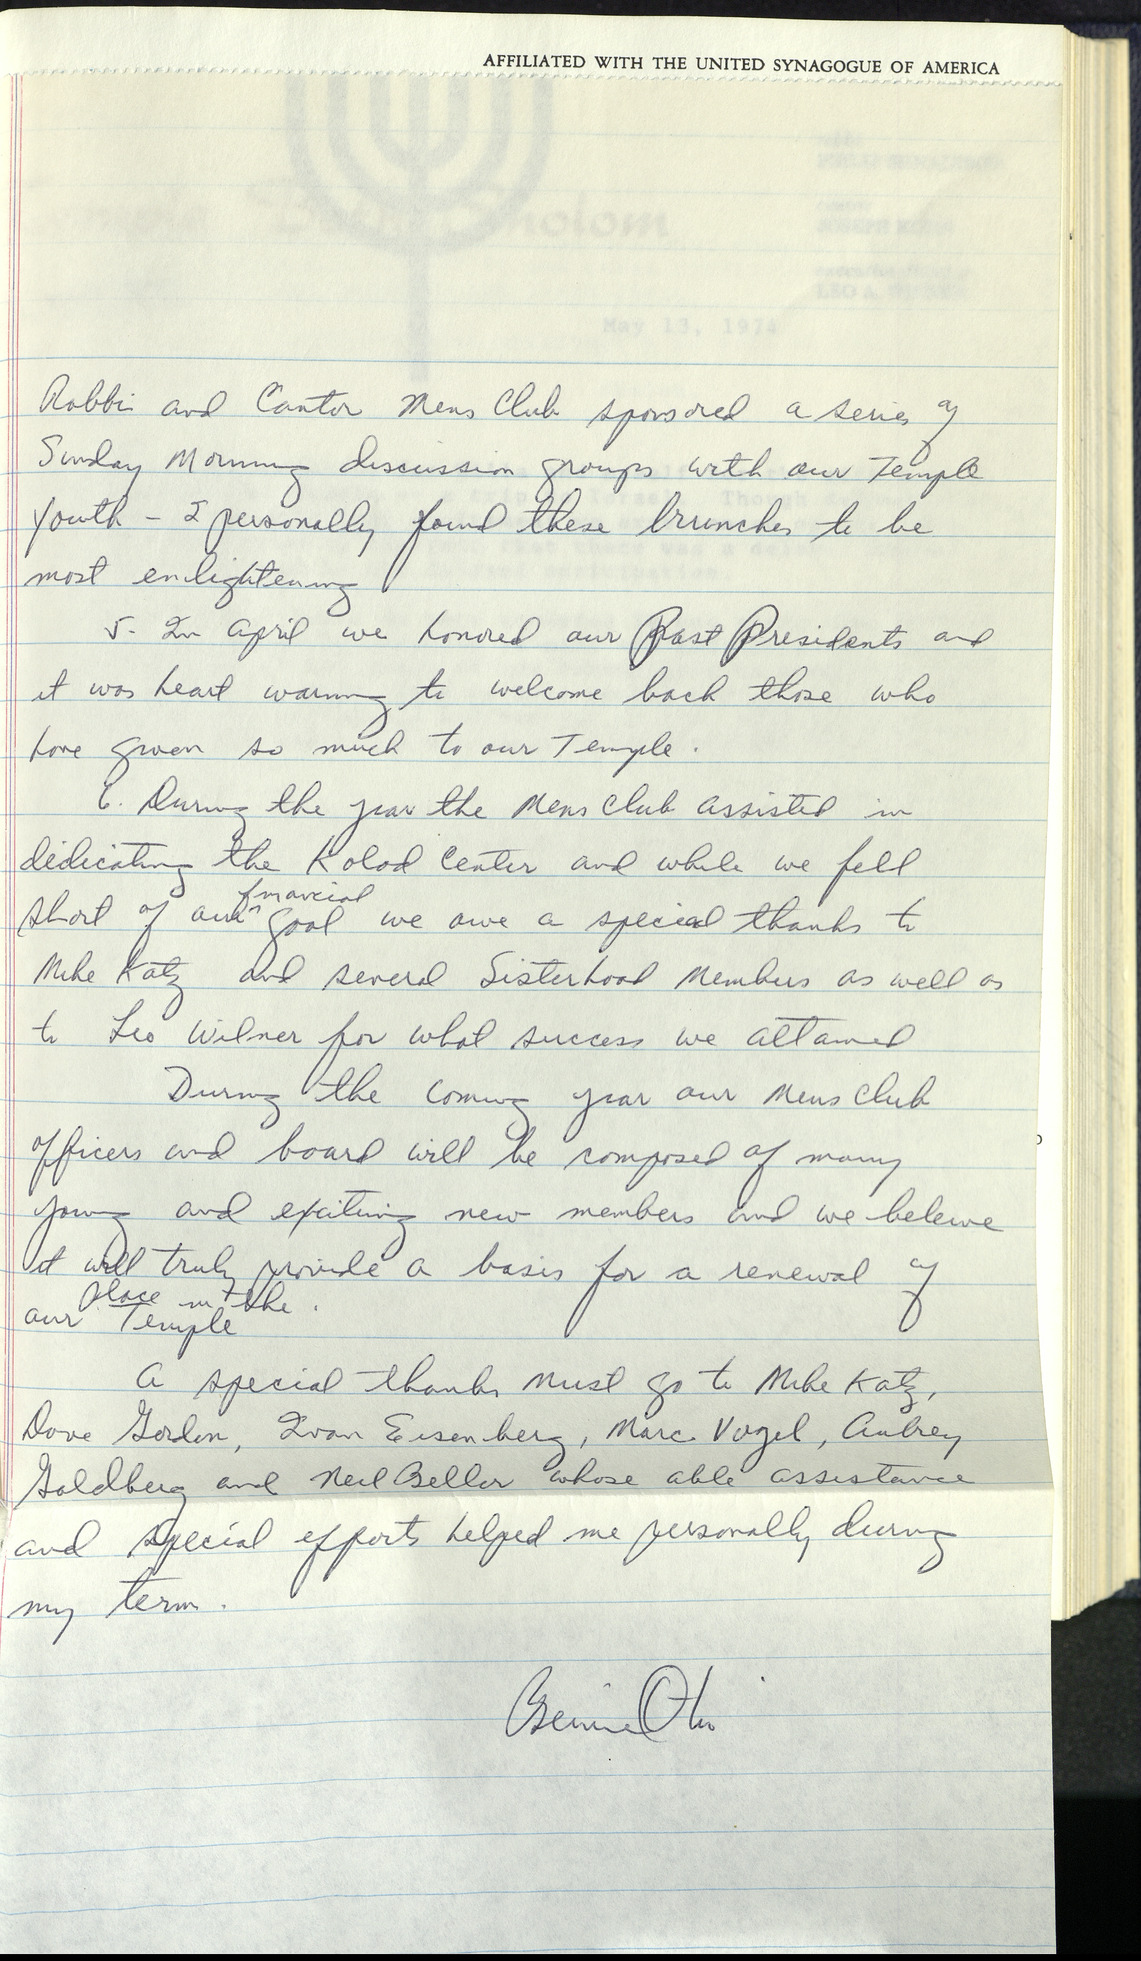 AFFILIATED WITH THE UNITED SYNAGOGUE OF AMERICA
May 13, 1974
Rabbi and Cantor Mens Club sponsored a series of
Sunday Morning discussion groups with our Temple
Youth - I personally found these brunches to be
most enlightening
5. In April we honored our Past Presidents and
it was heart warming to welcome back those who
have given so much to our Temple.
6. During the year the Mens Club assisted in
dedicating the Kolod Center and while we fell
financial
short of our ^ goal we owe a special thanks to
Mike Katz and several Sisterhood Members as well as
to Leo Wilner for what success we attained
During the coming year our Mens Club
officers and board will be composed of many
young and exciting new members and we believe
it will truly provide a basis for a renewal of
place in the
our Temple
A special thanks must go to Mike Katz,
Dave Gordon, Ivan Eisenberg, Marc Vogel, Aubrey
Goldberg and Neil Beller whose able assistance
and special efforts helped me personally during
my term.